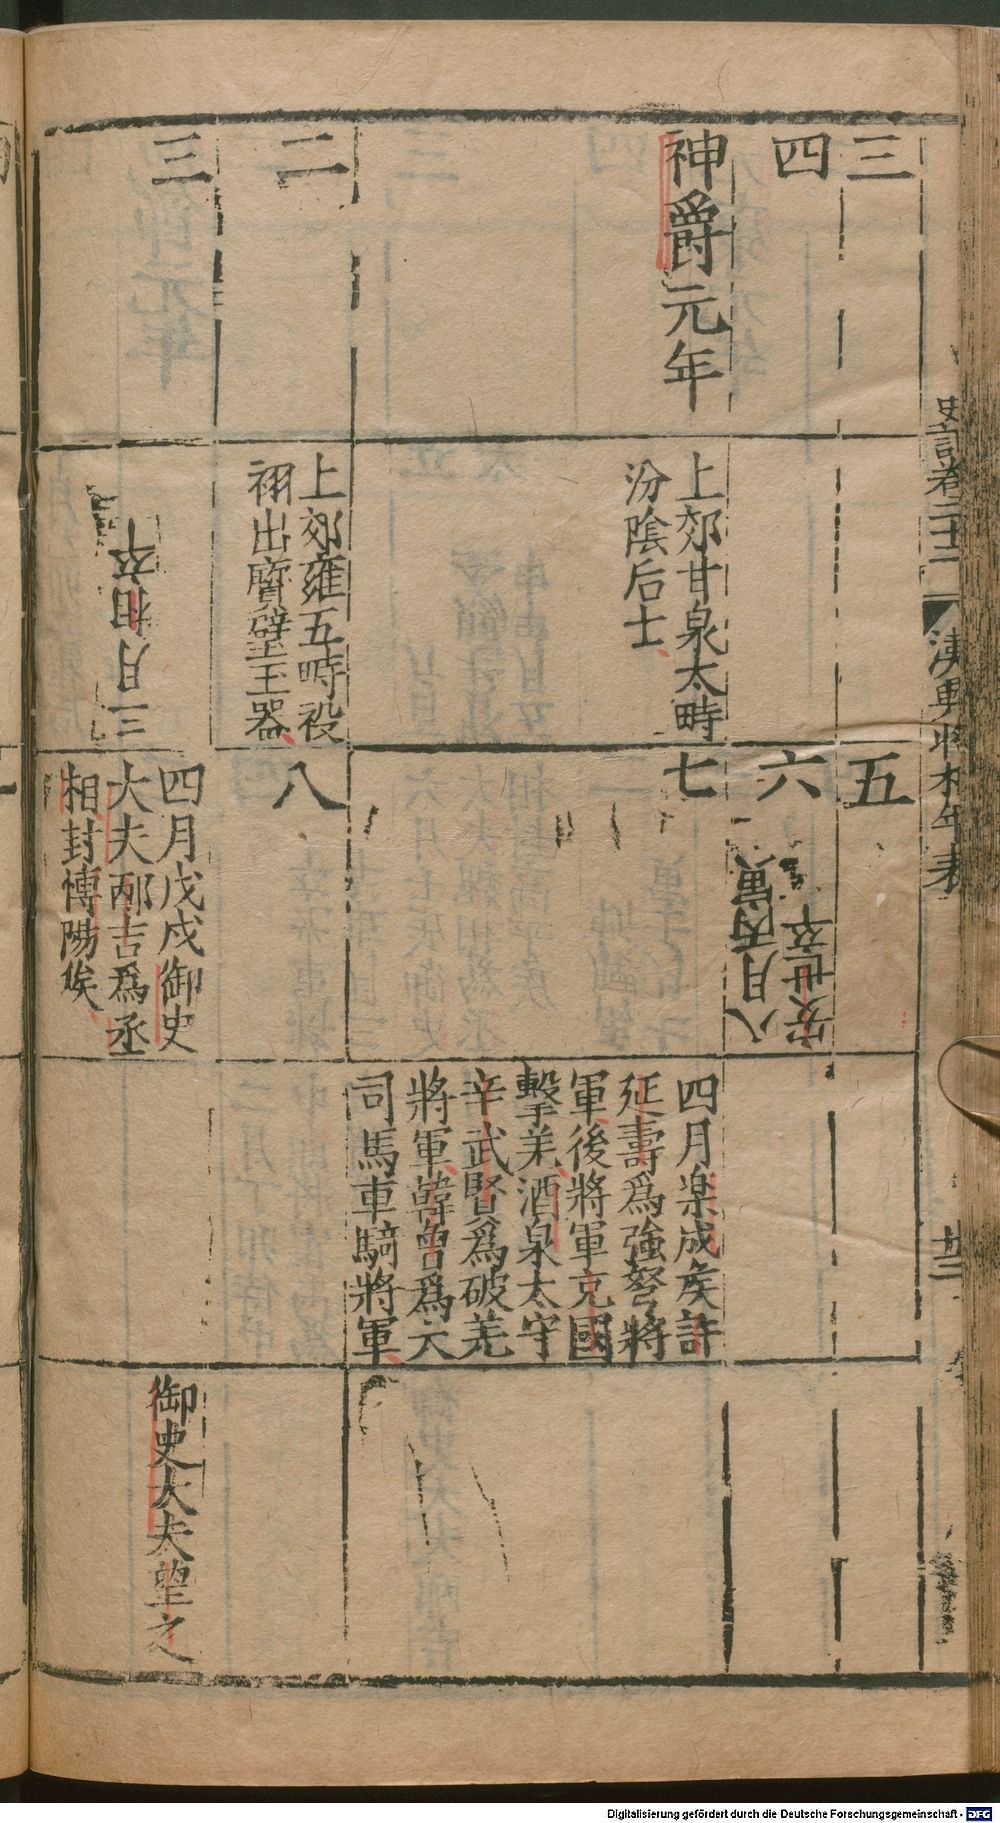 史記卷二十二
漢興將相年表
廿三
三
五
四
六
八月丙寅
安世卒
神爵元年
上郊甘泉太畤
汾陰后土
七
四月樂成侯許
延壽爲強弩將
軍後將軍充國
擊羌酒泉太守
辛武賢爲破羌
將軍韓曾爲大
司馬車騎將軍
二
上郊雍五畤祋
祤出寶璧玉器
八
三
三月相卒
四月戊戌御史
大夫邴吉爲丞
相封博陽侯
御史大夫望之
Digitalisierung gefördert durch die Deutsche Forschungsgemeinschaft - DFG